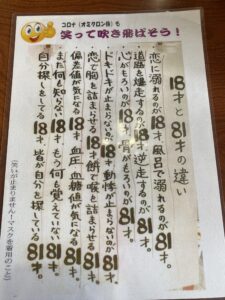 コロナ(オミクロン株)も
笑って吹き飛ばそう！
18才と81才の違い
恋に溺れるのが18才 風呂で溺れるのが81才。
道路を爆走するのが18才 逆走するのが81才。
心がもろいのが18才 骨がもろいのが81才。
ドキドキが止まらないのが18才 動悸が止まらないのが81才
恋で胸を詰まらせる18才 餅で喉を詰まらせる81才
偏差値が気になる18才 血圧・血糖値が気になる81才
まだ何も知らない18才 もう何も覚えていない81才。
自分探しをしてる18才 皆が自分を探している81才。
(笑いが止まりません！マスクを着用のこと)